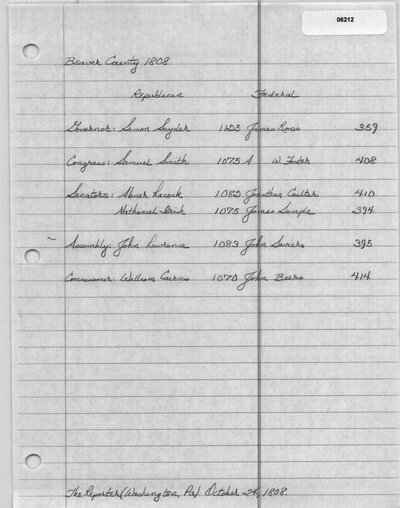 06212
Beaver County 1808
Republican Federal
Governor: Simon Snyder 1125 James Ross 359
Congress: Samuel Smith 1075 A W. Foster 408
Senators: Abner Lacock 1082 Jonathan Coulter 410
Nathaniel Irish 1075 James Sample 394
Assembly: John Lawrence 1083 John 395
Commissioner: William Cairns 1070 John Beers 414
The Reporter (Washington, Pa). October 24, 1808.